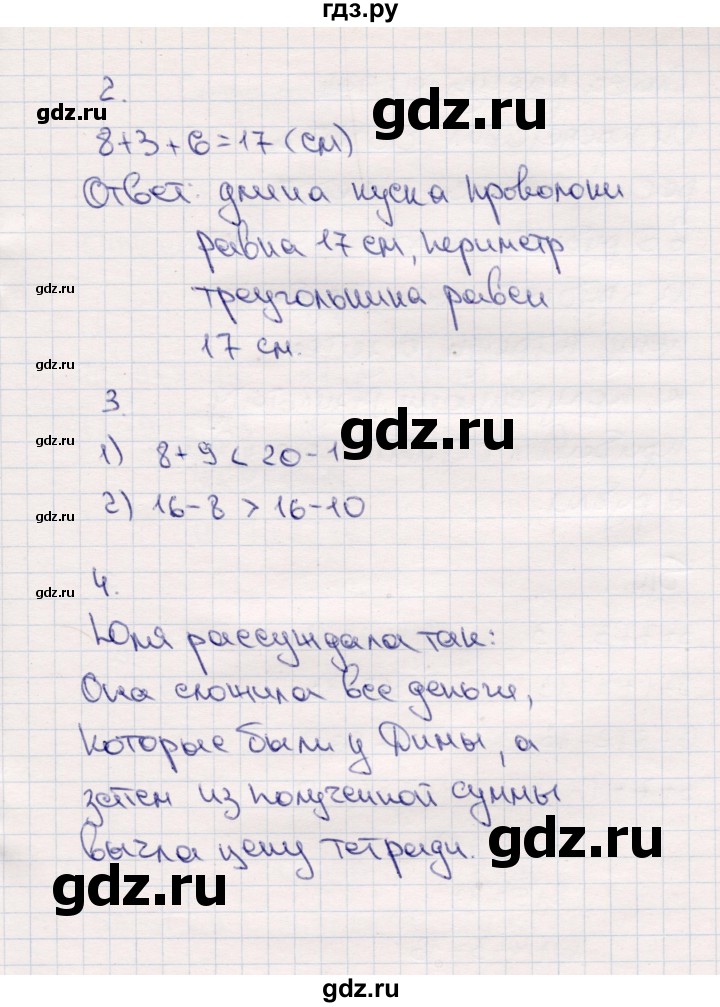 гдз.ру
2.
gdz.ru
gdz.ru
8+3+6=17 (см)
Ответ: длина куска проволоки
равна 17 см, периметр
gdz.ru
треугольника равен
17 см.
gdz.ru
3.
gdz.ru
gdz.ru
1) 8+9 < 20-1
2) 16-8 > 16-10
gdz.ru
4.
gdz.ru
Юля рассуждала так:
Она сложила все деньги,
которые были у Дины, а
затем из полученной суммы
вычла цену тетради.
gdz.ru
gdz.ru
gdz.ru